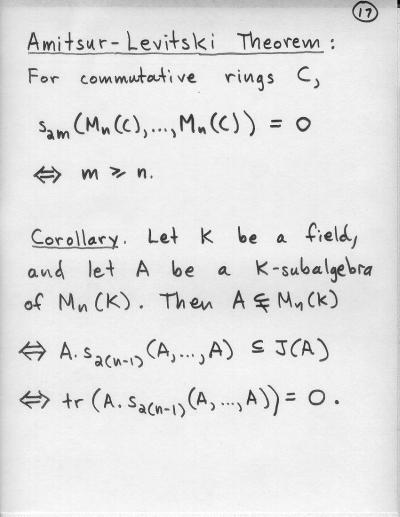 17
Amitsur-Levitski Theorem:
For commutative rings C,
s₂ₘ(Mₙ(C),...,Mₙ(C)) = 0
⇔ m ⩾ n.
Corollary. Let K be a field,
and let A be a K-subalgebra
of Mₙ(K). Then A ⊊ Mₙ(K)
⇔ A·s₂₍ₙ₋₁₎(A,...,A) ⊆ J(A)
⇔ tr(A·s₂₍ₙ₋₁₎(A,...,A)) = 0.